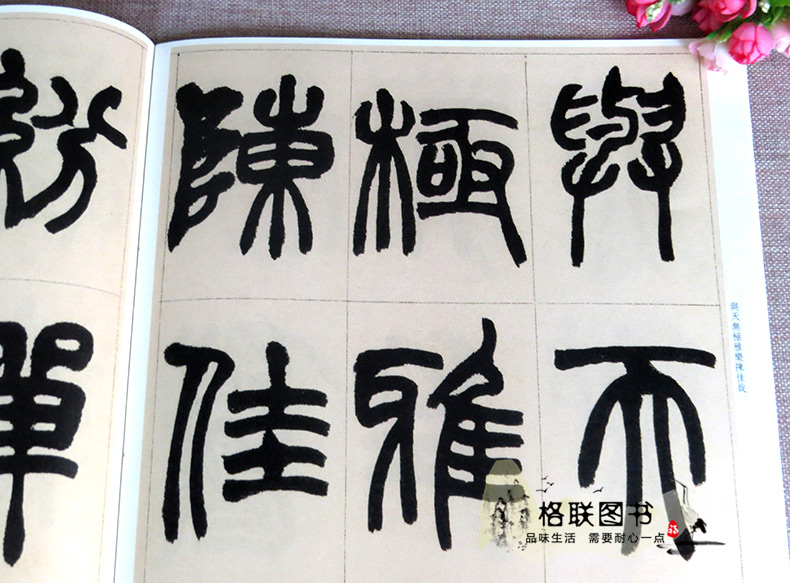 與天
極雅
陳佳
與天無極雅樂陳佳哉
單
格联图书
品味生活 需要耐心一点
福